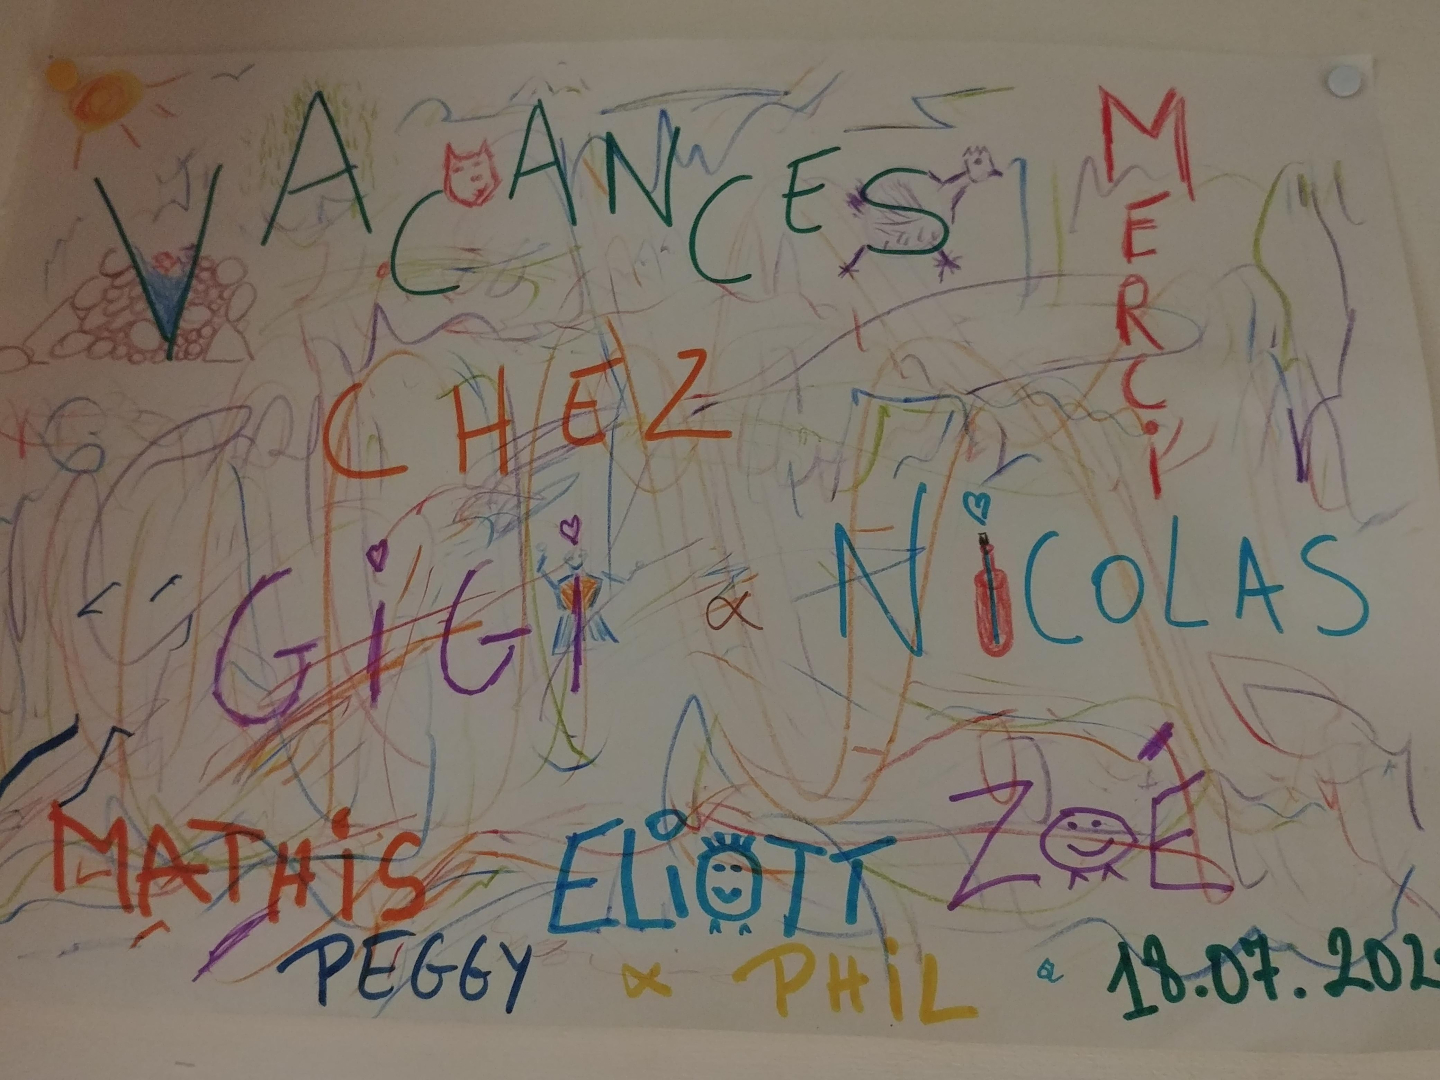 VACANCES
MERCi
CHEZ
GiGi & NiCOLAS
MATHiS ELiOTT ZOÉ
PEGGY & PHiL
18.07.202